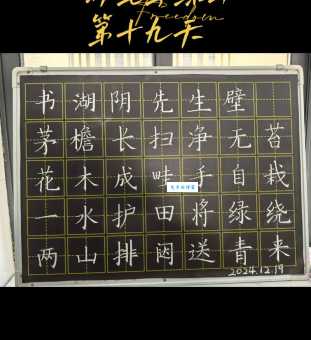 Freedom
第十九天
书湖阴先生壁
茅檐长扫净无苔
花木成畦手自栽
一水护田将绿绕
两山排闼送青来
2024.12.19